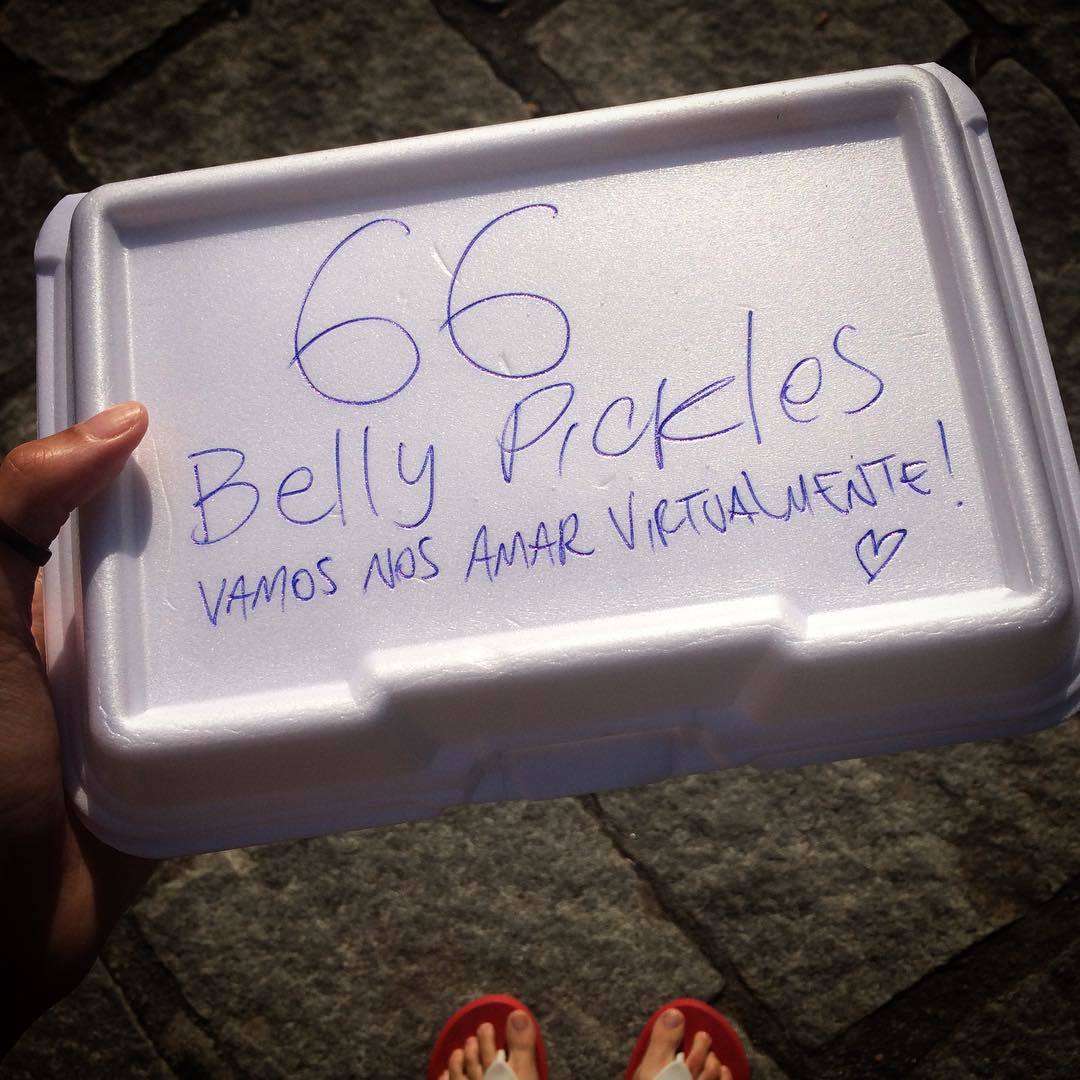 66
Belly Pickles
VAMOS NOS AMAR VIRTUALMENTE!